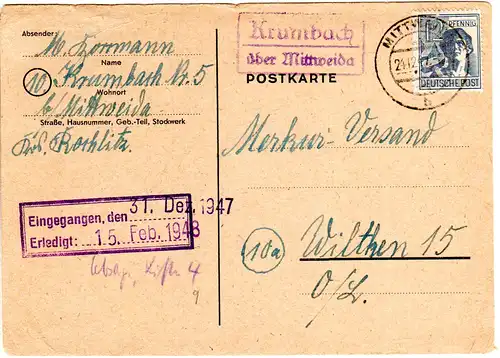 Absender:
M. Hormann
Name
10 Krumbach Nr. 5
Wohnort
b/Mittweida
Straße, Hausnummer, Geb.-Teil, Stockwerk
Krs. Rochlitz
Krumbach
über Mittweida
POSTKARTE
MITTWEIDA
b
PFENNIG
DEUTSCHE POST
Merkur-Versand
10a Wilthen 15
O/L.
Eingegangen, den 31. Dez. 1947
Erledigt: 15. Feb. 1948
4
9